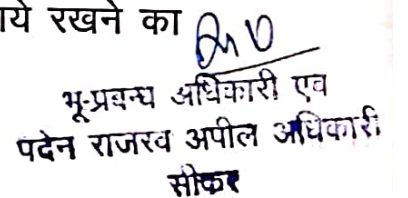 ये रखने का
भू-प्रबन्ध अधिकारी एव
पदेन राजस्व अपील अधिकारी
सीकर